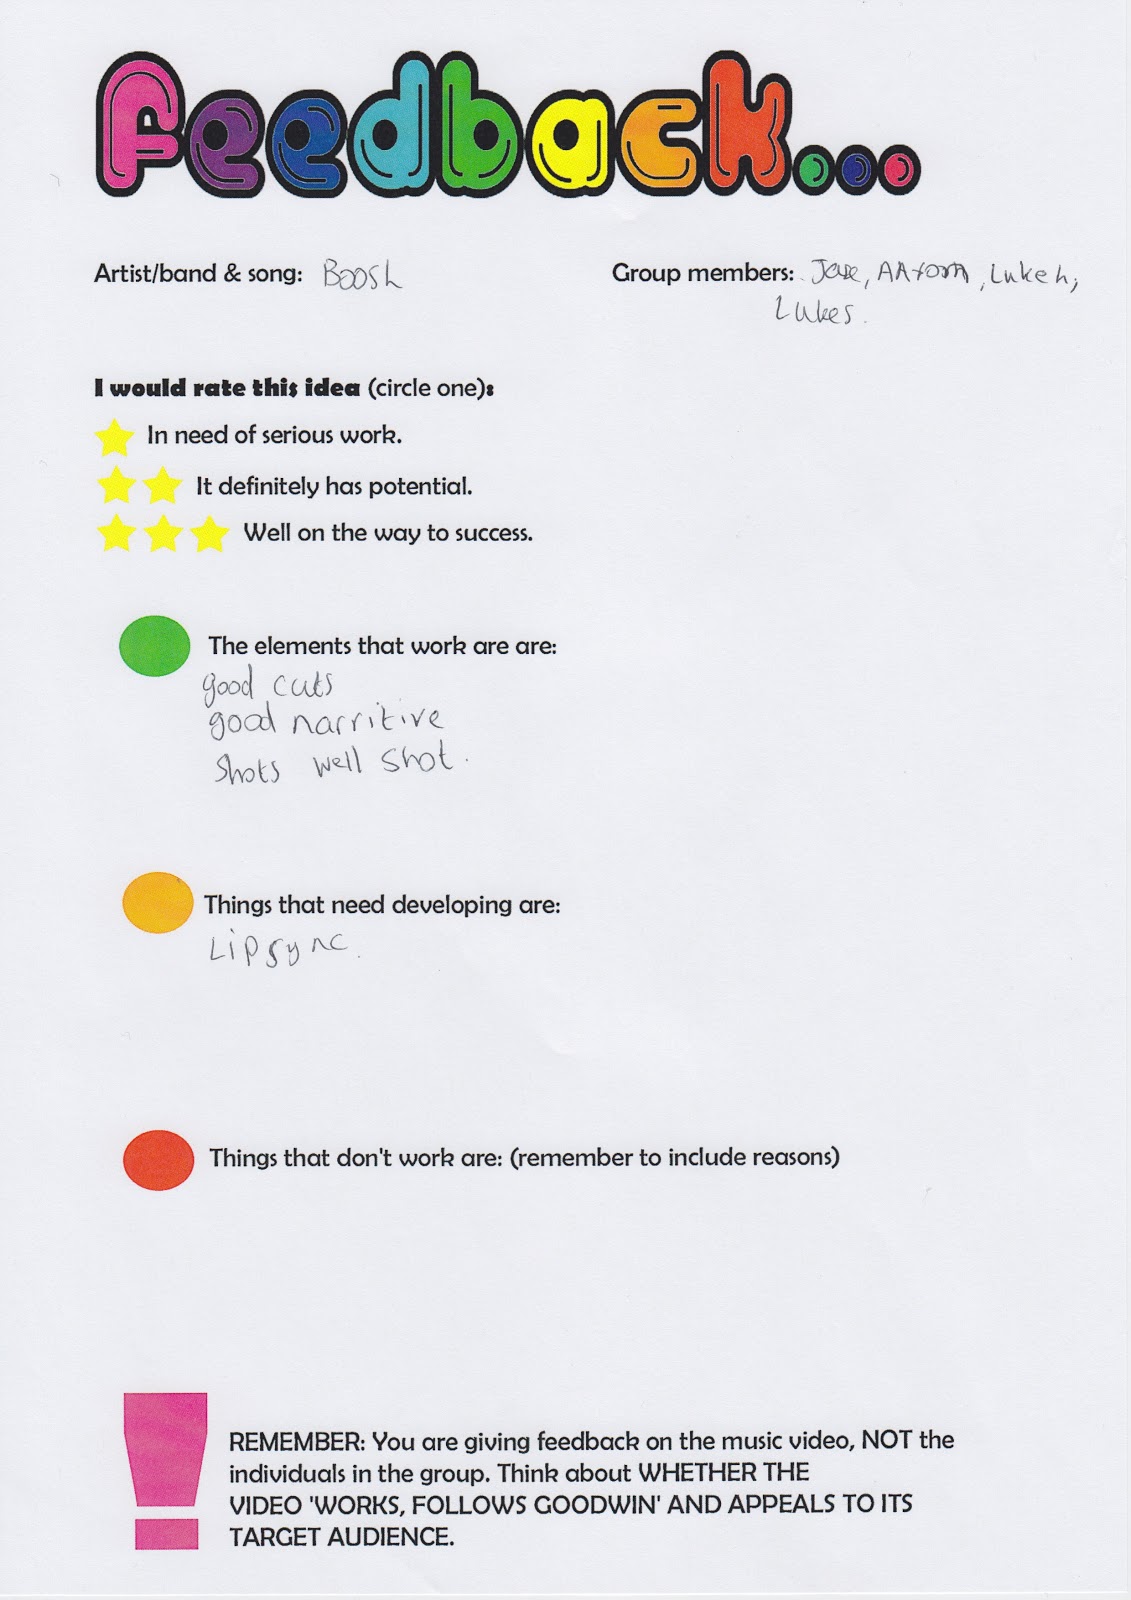 Feedback...
Artist/band & song: Boosh
Group members: AAroon, Luke h,
Luke s.
I would rate this idea (circle one):
In need of serious work.
It definitely has potential.
Well on the way to success.
The elements that work are are:
good cuts
good narritive
shots well shot.
Things that need developing are:
Lip sync.
Things that don't work are: (remember to include reasons)
REMEMBER: You are giving feedback on the music video, NOT the
individuals in the group. Think about WHETHER THE
VIDEO 'WORKS, FOLLOWS GOODWIN' AND APPEALS TO ITS
TARGET AUDIENCE.